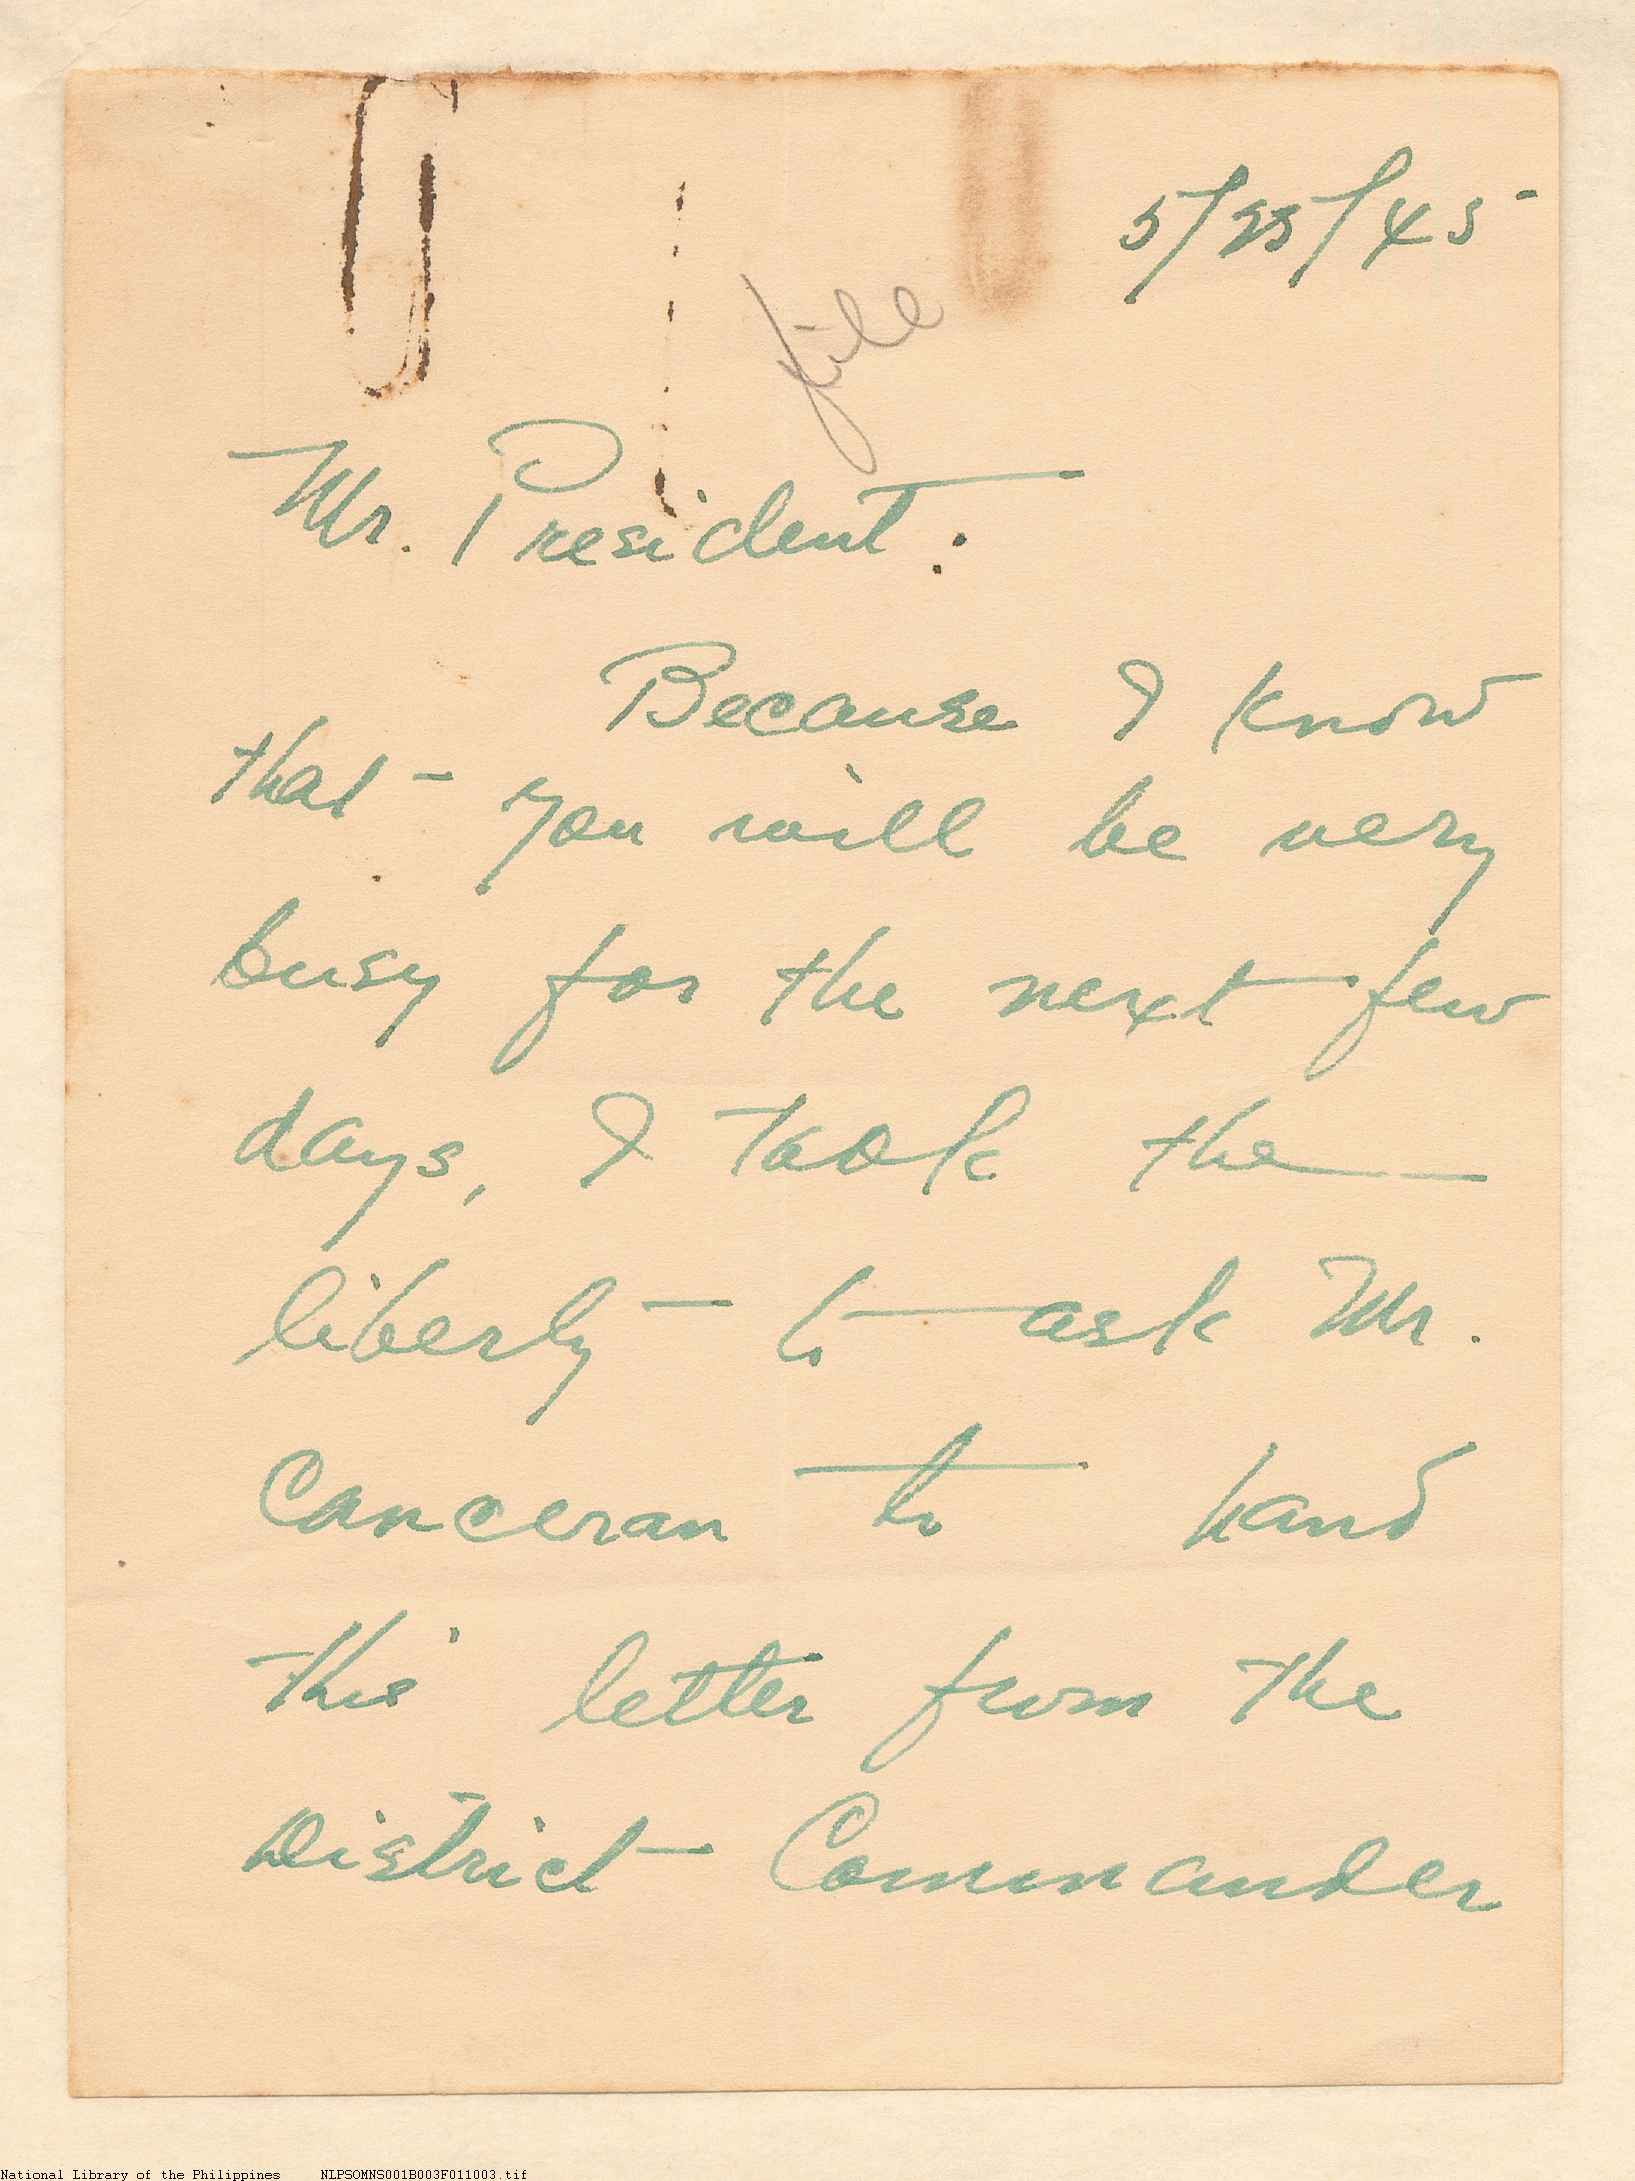 5/25/45
file
Mr. President:
Because I know
that you will be very
busy for the next few
days, I took the
liberty to ask Mr.
Canceran to hand
this letter from the
District Commander
National Library of the Philippines NLPSOMNS001B003F011003.tif